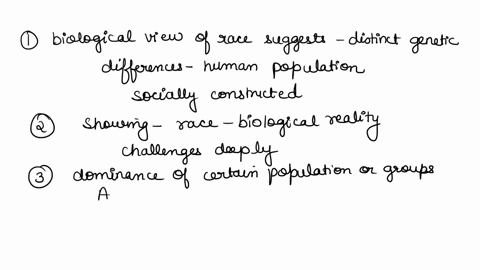 ① biological view of race suggests - distinct genetic
differences - human population
socially constructed
② showing - race - biological reality
challenges deeply
③ dominance of certain population or groups
A